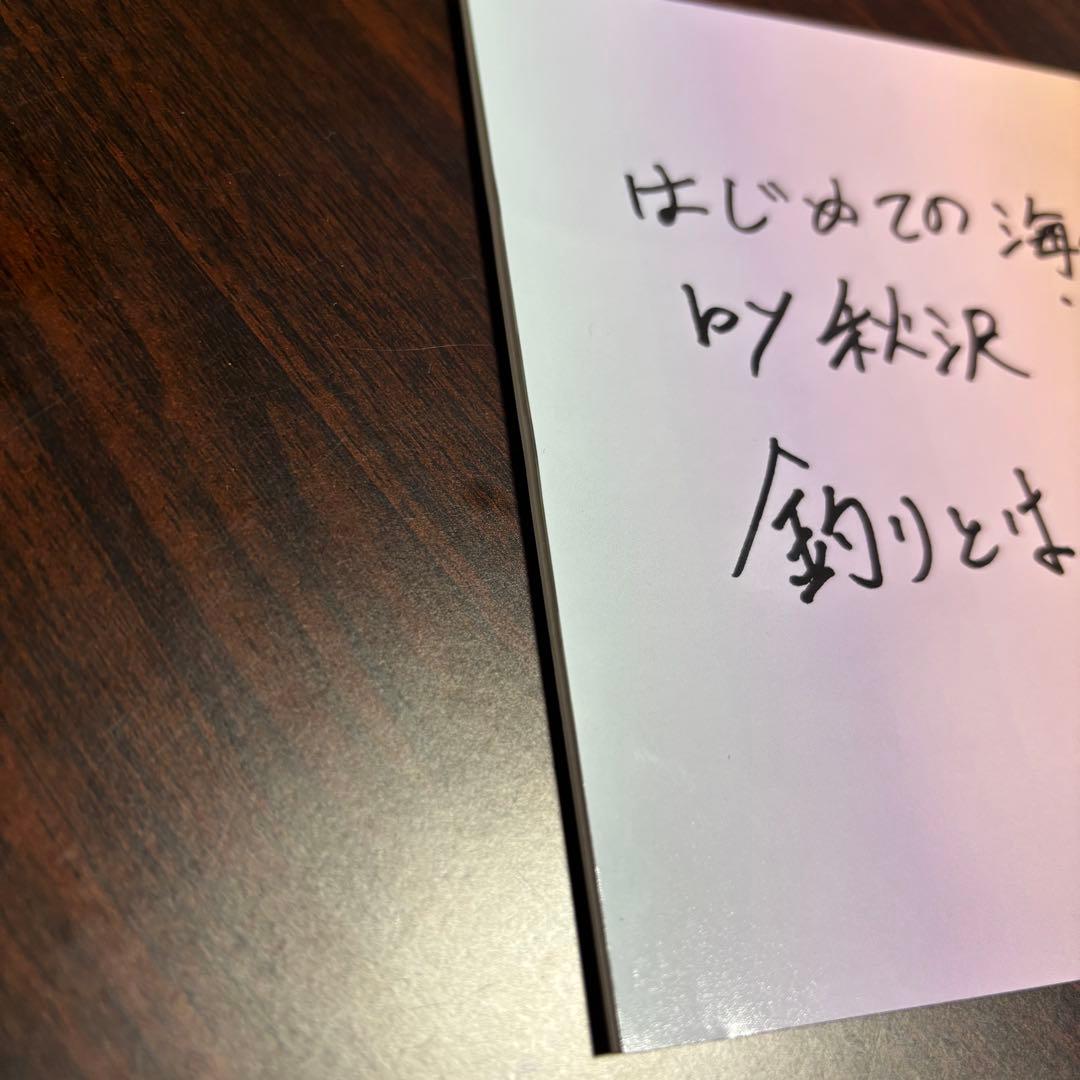 はじめての海
by 秋沢
釣りとは